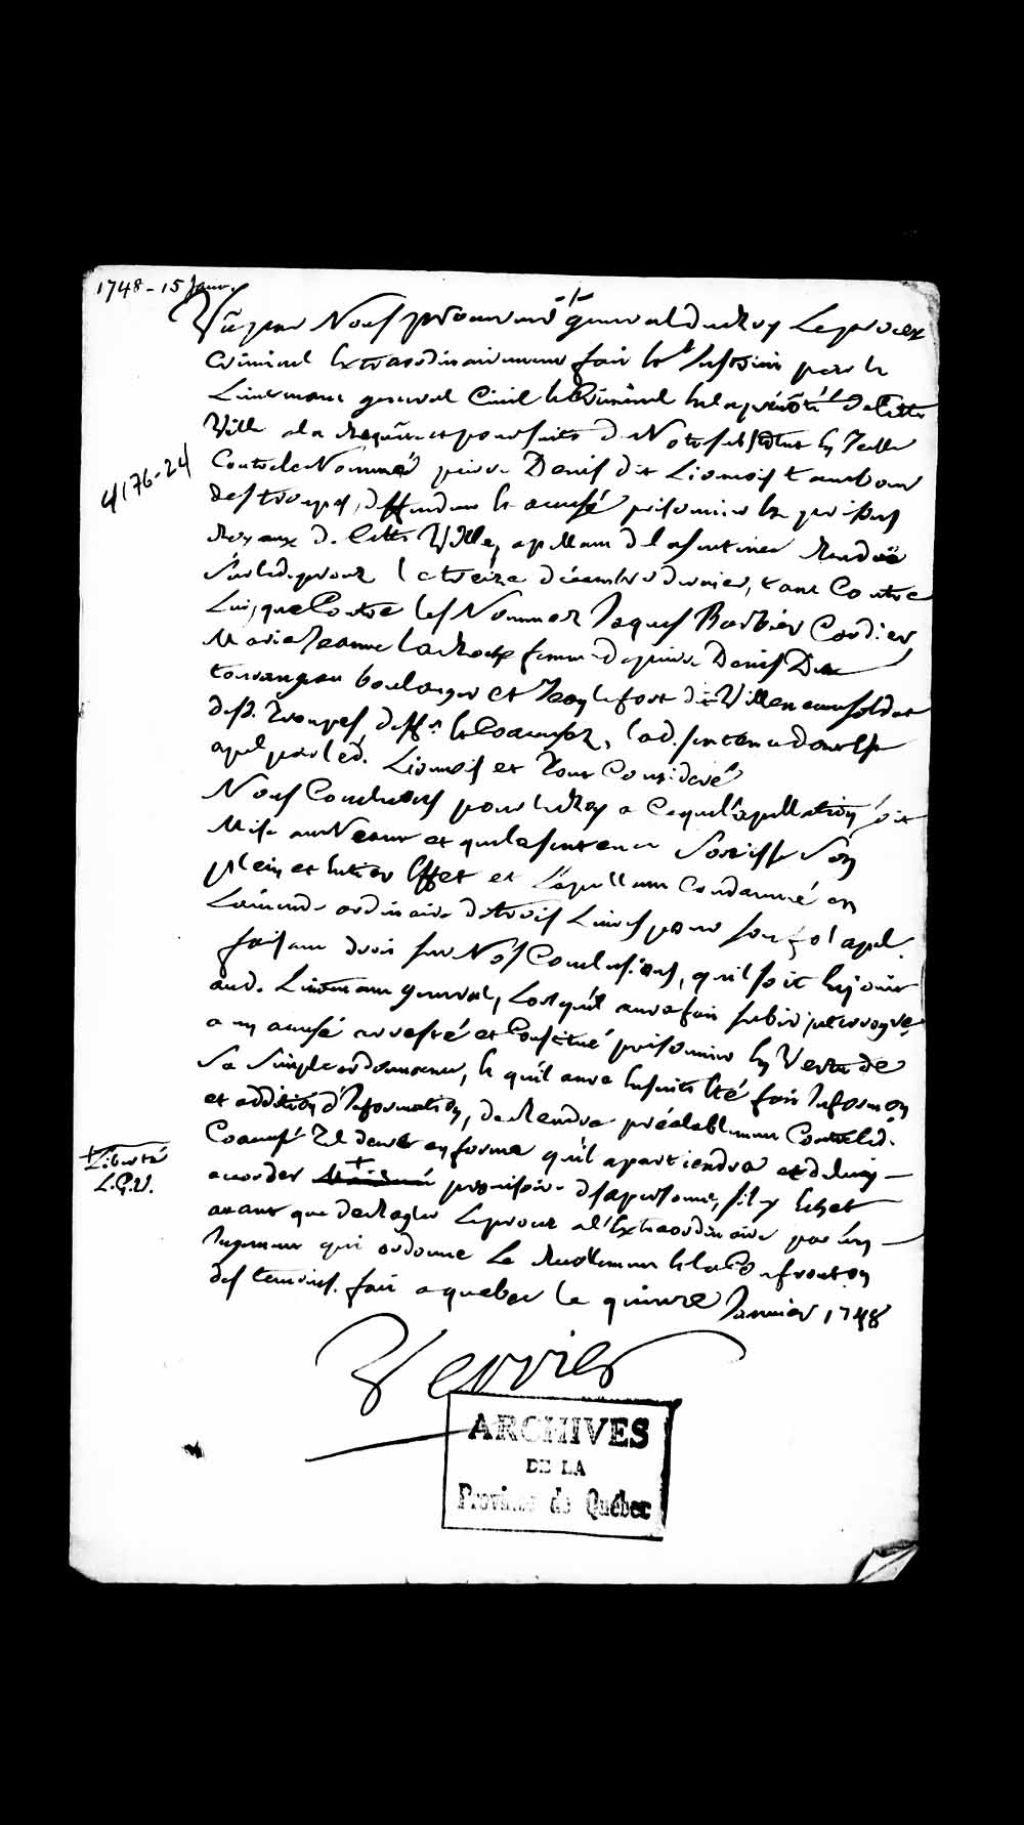 1748 - 15 Janv.
Vû par Nous procureur general du Roy Le procez
Criminel Extraordinairement fait et Instruit par le
Lieutenant general Civil et Criminel de la prevôté de Cette
Ville a la Requête et poursuitte de Notre substitut en Icelle
4176-24
Contre le Nommé pierre Denis dit Lionnois tambour
des troupes, deffendeur et accusé prisonnier ez prisons
Royaux de Cette Ville, apellant de la sentence Rendüe
sur led. procez le treize décembre dernier, tant Contre
Lui, que Contre les Nommez Jaques Barbier Cordier
Marie Jeanne LaRoche femme de pierre Denis Dit
tourangeau boulanger et Jean lefort dit Villeneuve soldat
desd. troupes, deff.rs et Coaccusez, lad. sentence dont est
apel par led. Lionnois et Tout Considéré
Nous Concluons pour le Roy a Ceque l'apellation soit
Mise au Neant et que la sentence Sortisse Son
plein et Entier Effet et L'apellant Condamné en
L'amende ordinaire de trois Livres pour son fol apel.
faisant droit sur Nos Conclusions, qu'il soit Enjoint
aud. Lieutenant general, Lorsqu'il aura fait subir interrogre
a un accusé arresté et Constitué prisonnier En Vertu de
Sa Simple ordonnance, et qu'il aura Ensuite Eté fait Information
et addition d'Information, de Rendre préalablement Contre led.
Coaccusé Un decret en forme qu'il apartiendra et de luy
accorder + provisoire de sa personne, s'il y Echet
+ Liberté
L.G.V.
avant que de Regler Le procez a l'Extraordinaire par un
Jugement qui ordonne Le Recollement et la Confrontaon
des temoins. fait a quebec le quinze Janvier 1748
Verrier
ARCHIVES
DE LA
Province de Québec